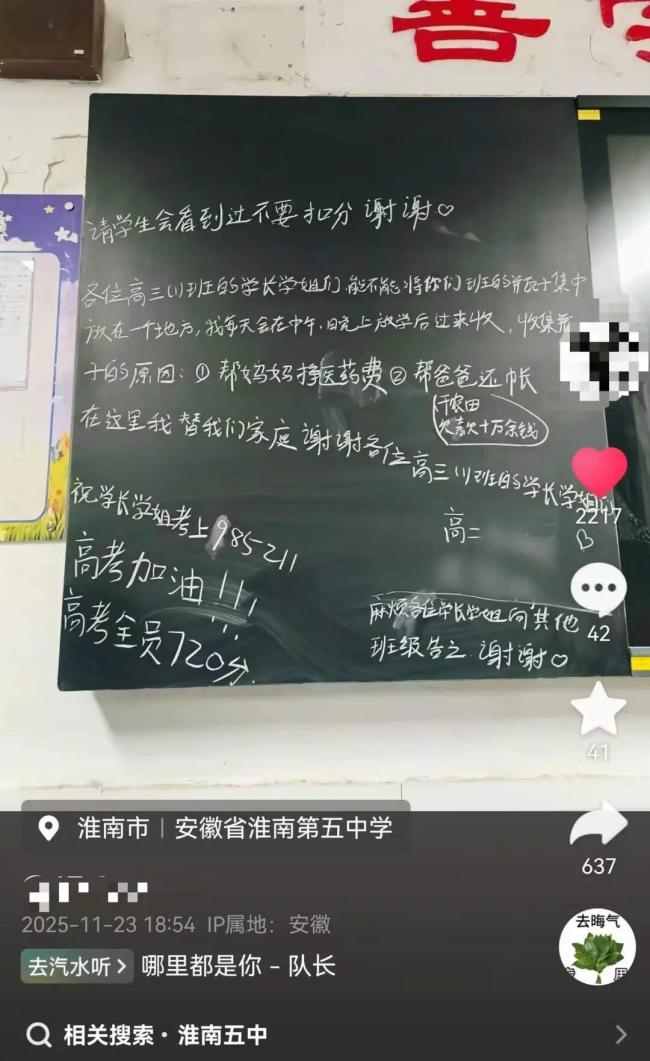 善
请学生会看到过不要扣分 谢谢♡
各位高三(1)班的学长学姐们,能不能将你们班的瓶子集中
放在一个地方,我每天会在中午、晚上放学后过来收,收集瓶
子的原因:① 帮妈妈挣医药费② 帮爸爸还帐
干农田
欠款十万余钱
在这里我替我们家庭 谢谢各位高三(1)班的学长学姐们
祝学长学姐考上985211
高二
高考加油!!!
高考全员720分.
麻烦各位学长学姐向其他
班级告之 谢谢♡
2217
42
41
637
淮南市 | 安徽省淮南第五中学
2025-11-23 18:54 IP属地:安徽
去汽水听 > 哪里都是你 - 队长
去晦气
相关搜索·淮南五中